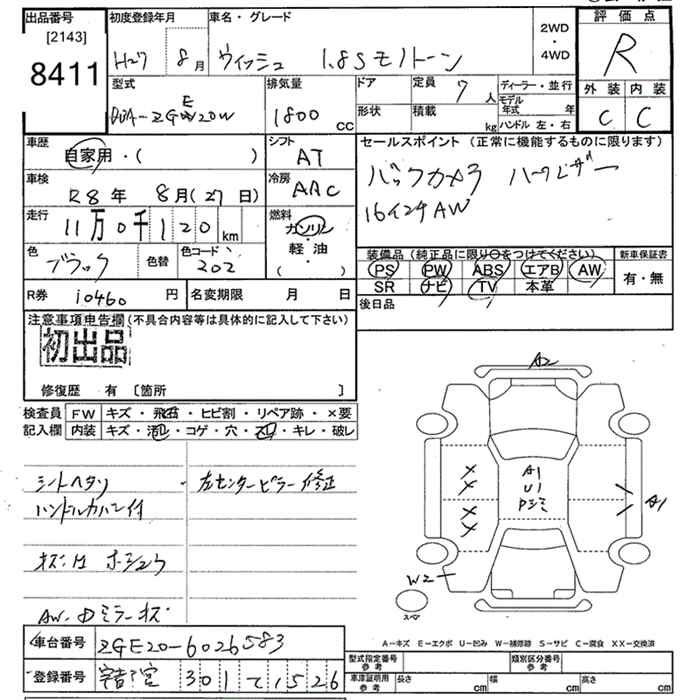 出品番号
[2143]
8411
初度登録年月
H27 8月
車名・グレード
ウィッシュ 1.8S モノトーン
2WD
・
4WD
評価点
R
外装 内装
C C
型式
DBA-ZGE20W
排気量
1800 cc
ドア
形状
定員 7人
積載 kg
ディーラー・並行
モデル年式 年
ハンドル 左・右
車歴
自家用・( )
シフト
AT
セールスポイント (正常に機能するものに限ります)
バックカメラ ハーフレザー
16インチAW
車検
R8年 8月(27日)
冷房
AAC
走行
11万0千120km
燃料
ガソリン
軽・油
( )
色
ブラック
色替
色コード
202
装備品 (純正品に限り○をつけてください)
PS PW ABS エアB AW
SR ナビ TV 本革
新車保証書
有・無
R券 10460円
名変期限 月 日
後日品
注意事項申告欄(不具合内容等は具体的に記入して下さい)
初出品
修復歴 有 〔箇所 〕
検査員 FW キズ・飛石・ヒビ割・リペア跡・×要
記入欄 内装 キズ・汚レ・コゲ・穴・スレ・キレ・破レ
シートヘタリ
ハンドルカバー付
・左センターピラー修正
AW・Dミラーキズ
A2
A1
U1
A1
W2
スペア
A-キズ E-エクボ U-凹み W-補修跡 S-サビ C-腐食 XX-交換済
車台番号 ZGE20-6026583
登録番号 宇都宮 301 て 1526
型式指定番号
参考
類別区分番号
参考
車庫証明用
参考
長さ cm
幅 cm
高さ cm